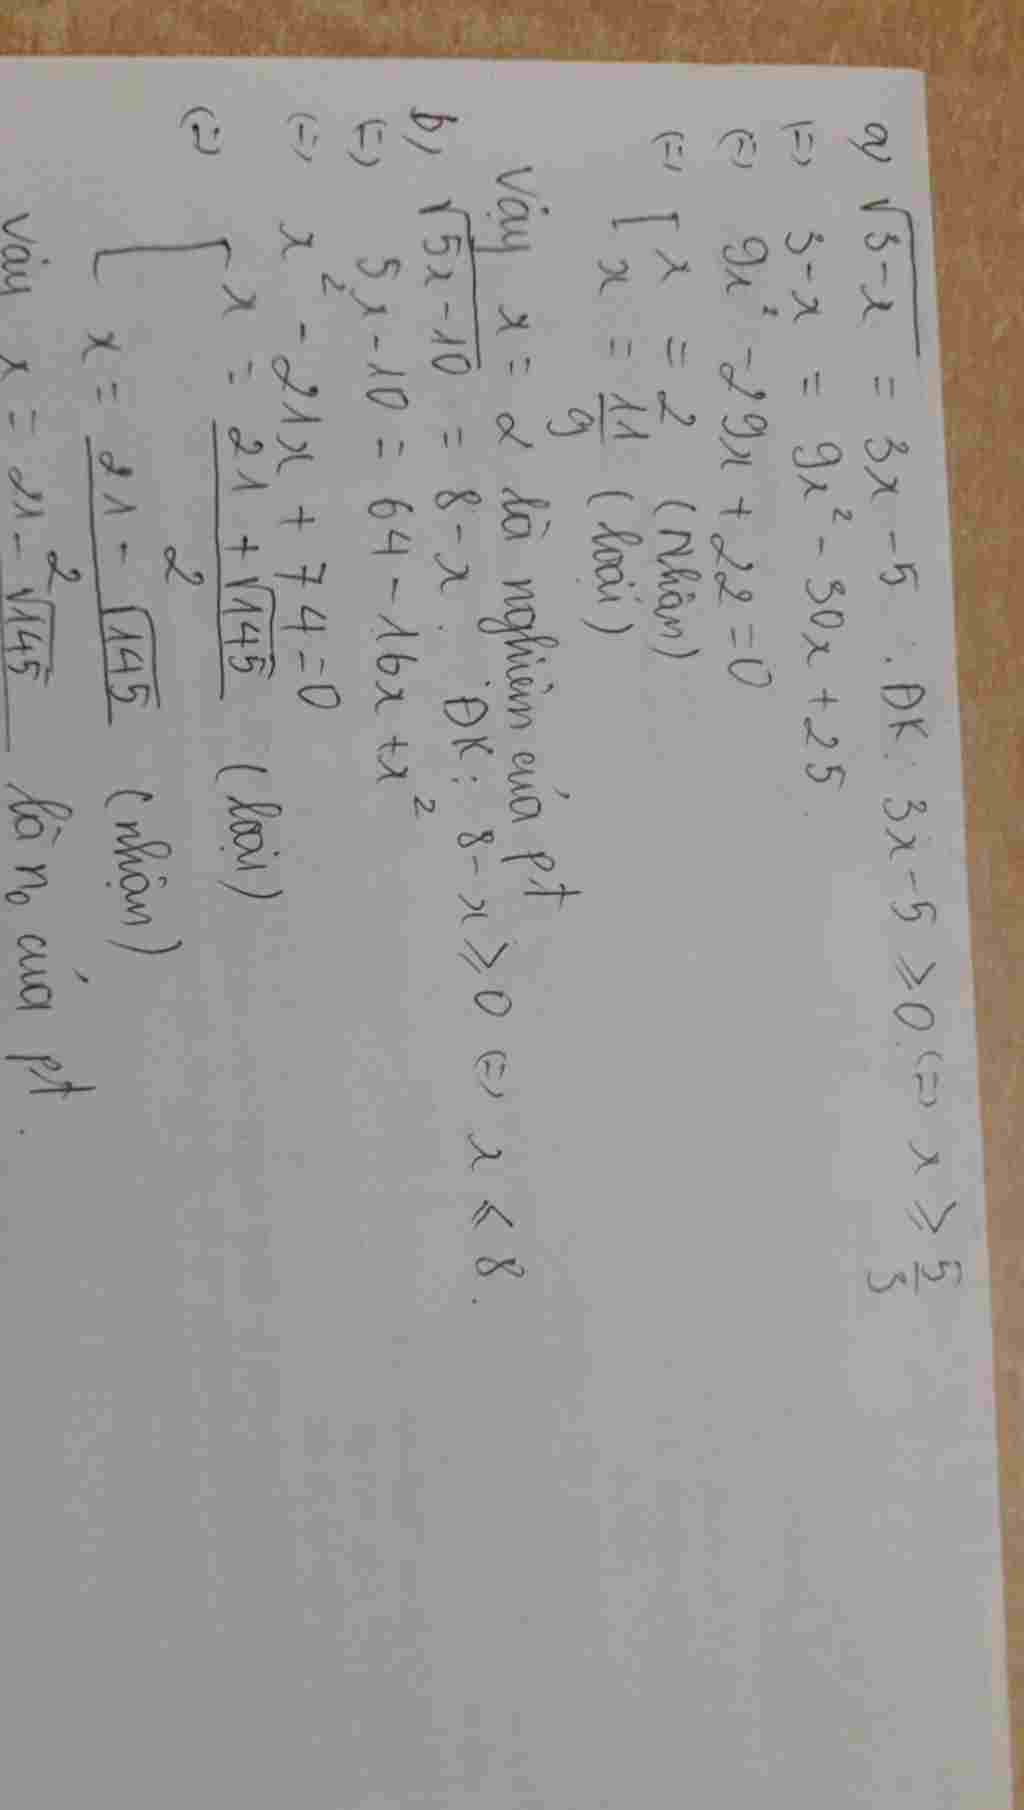 a) √(3-x) = 3x-5 . ĐK: 3x-5 ≥ 0 (=) x ≥ 5/3
(=) 3-x = 9x² - 30x + 25.
(=) 9x² - 29x + 22 = 0
(=) [ x = 2 (nhận)
x = 11/9 (loại)
Vậy x = 2 là nghiệm của pt
b) √(5x-10) = 8-x . ĐK: 8-x ≥ 0 (=) x ≤ 8.
(=) 5x-10 = 64 - 16x + x²
(=) x² - 21x + 74 = 0
(=) [ x = (21 + √145)/2 (loại)
x = (21 - √145)/2 (nhận)
Vậy x = (21 - √145)/2 là n₀ của pt.